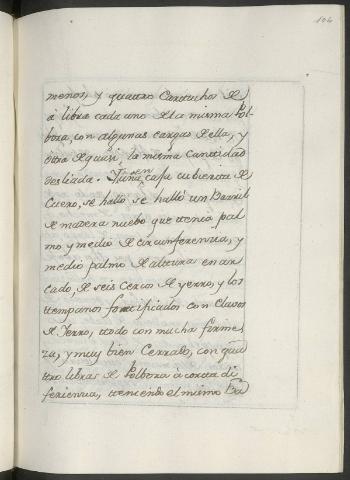 104
menos, y quattro Cartuchos de
à libra cada uno de la misma Pol-
bora, con algunas cargas de ella, y
otra de quasi la misma cantidad
desliada. Y una en casa cubierta de
Cuero, se hallò se hallò un Barril
de madera nuebo que tenia pal
mo y medio de circunferenzia, y
medio palmo de altura en ar
cado, de seis cercos de yerro, y los
tempanos fortificados con Clavos
de Ierro, todo con mucha firme
za, y muy bien Cerrado, con qua
ttro libras de Polbora à corta di
ferienzia, teniendo el mismo Ba